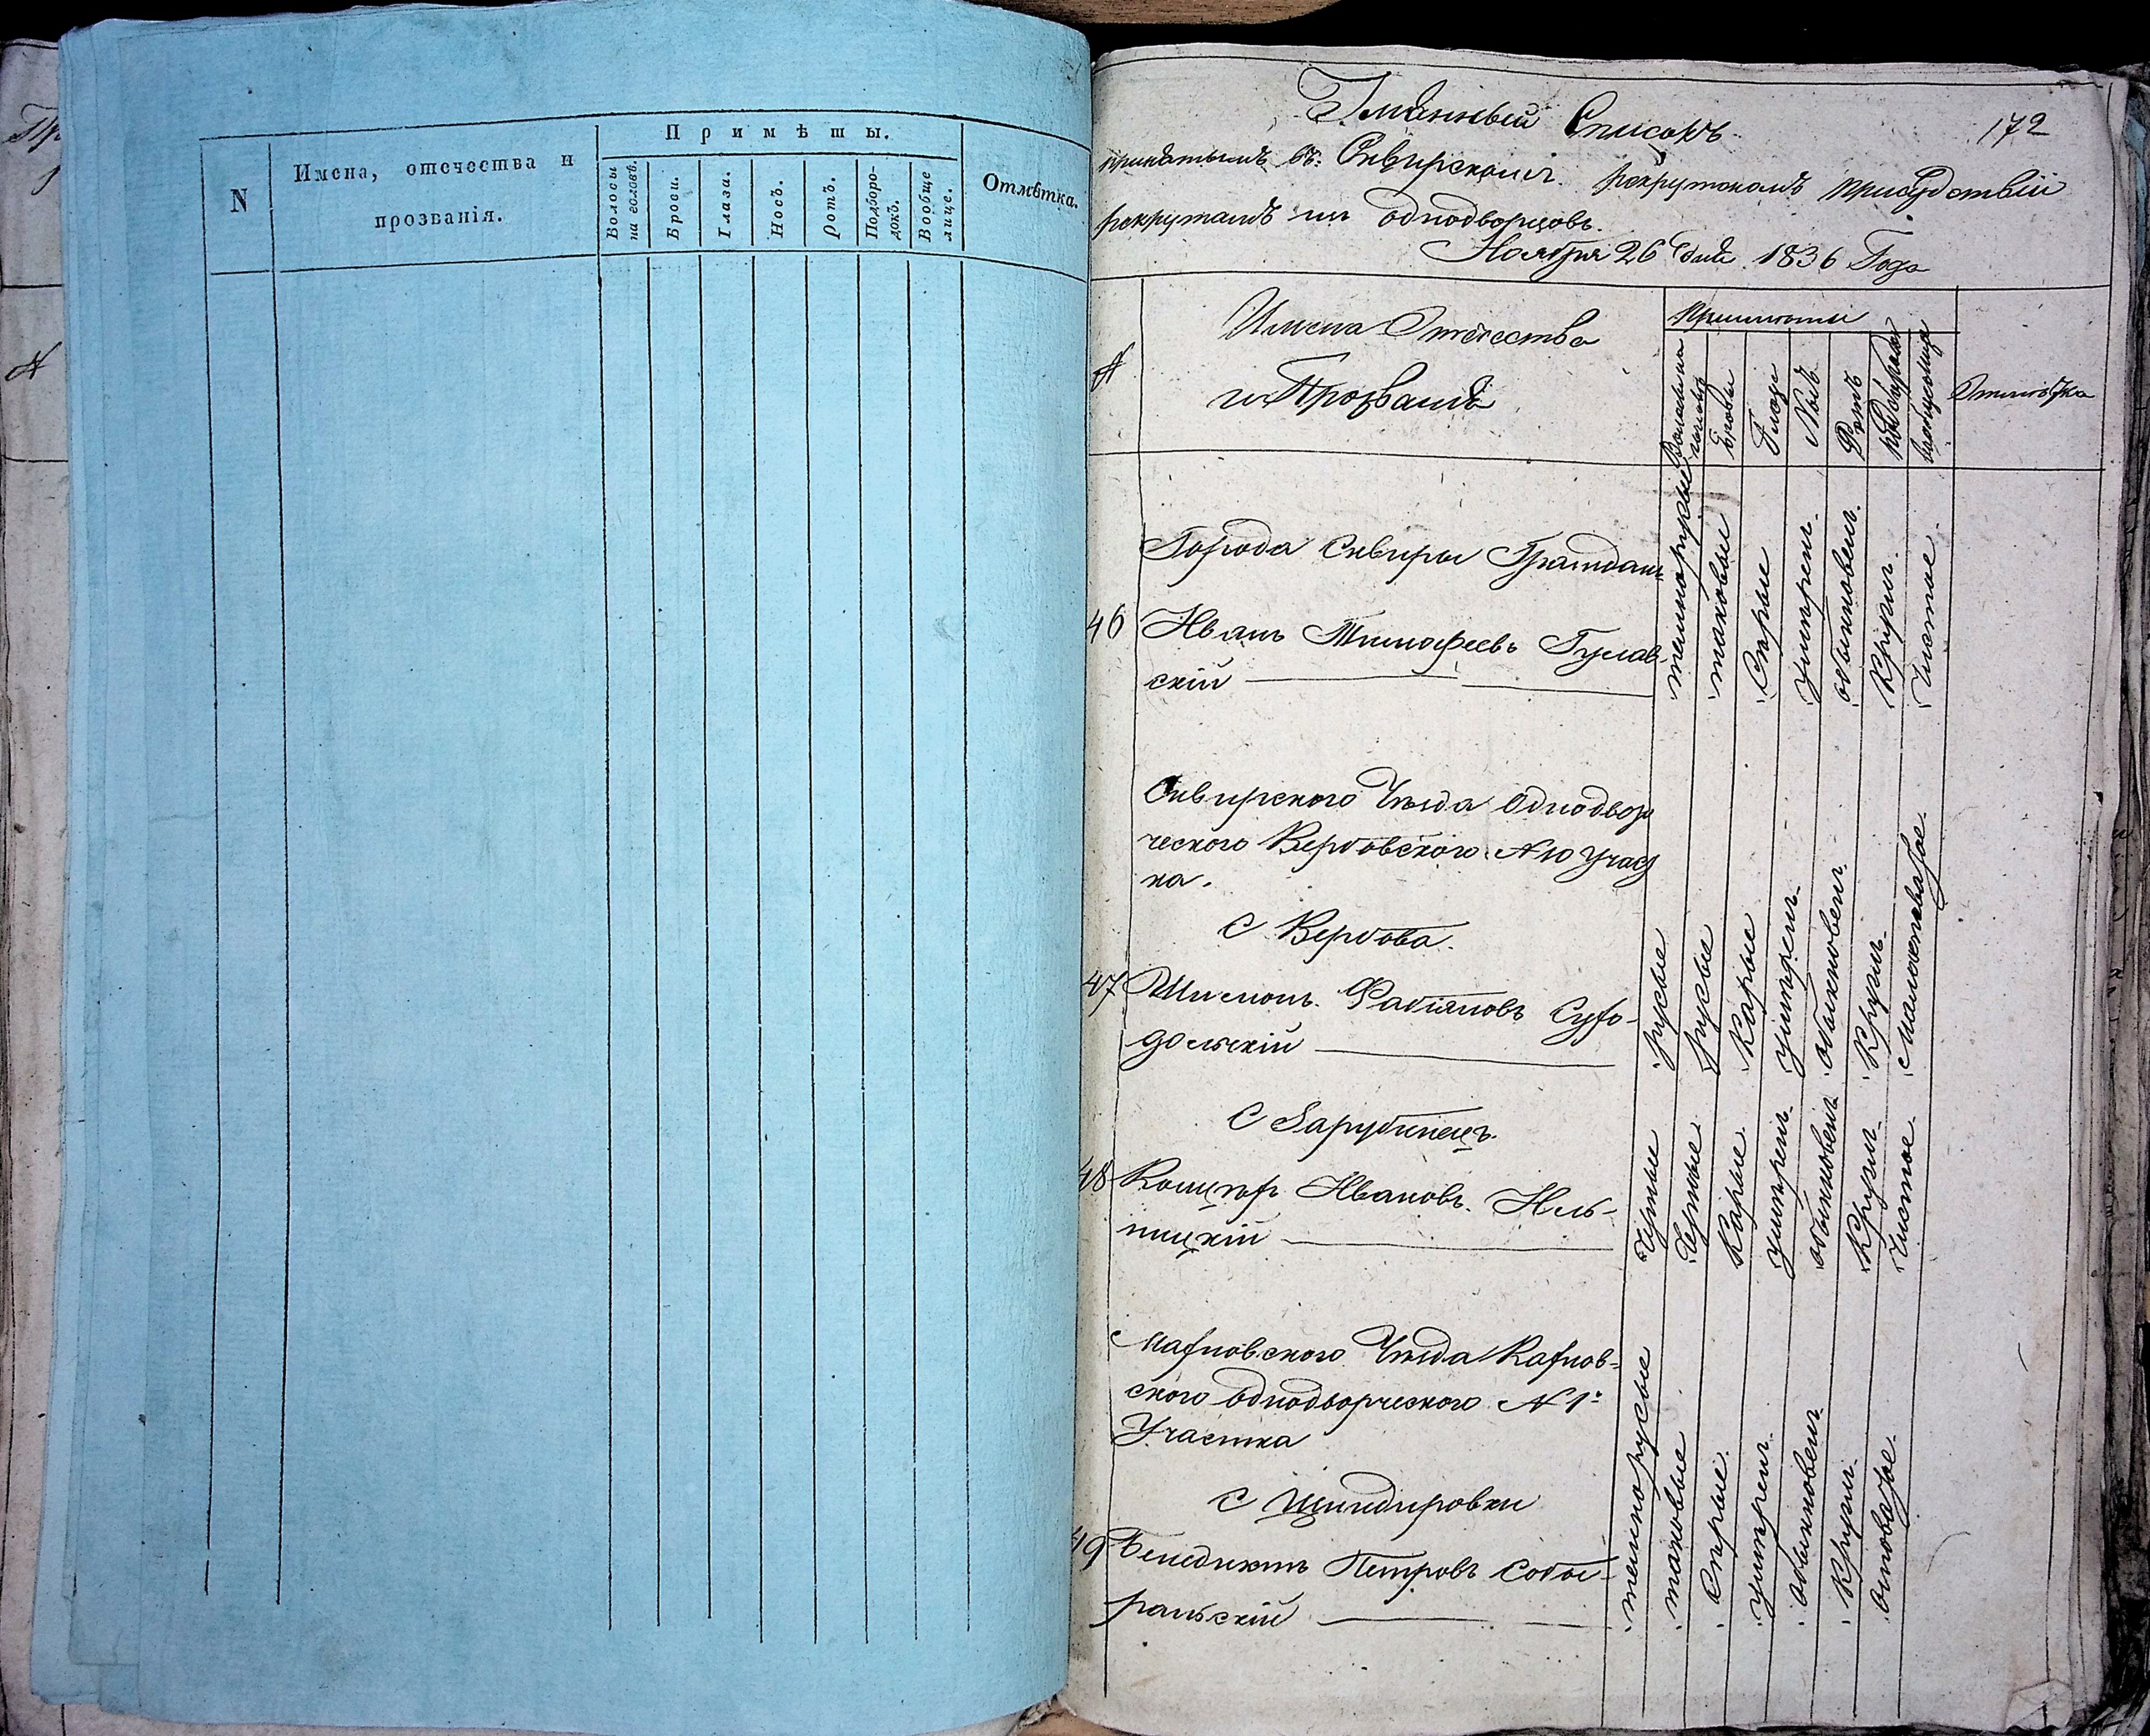 N
Имена, отечества и
прозванія.
Примѣты.
Волосы
на головѣ.
Брови.
Глаза.
Носъ.
Ротъ.
Подборо-
докъ.
Вообще
лице.
Отмѣтка.
172
Имянный Списокъ
принятымъ въ Сквирскомъ рекрутскомъ присудствіи
рекрутамъ из однодворцовъ.
Ноября 26 дня 1836 Года
N
Имена Отечества
и Прозванія
Примѣты
Волоса на
головѣ
Брови
Глаза
Носъ
Ротъ
Подбородокъ
Вообще лице
Отмѣтка
Города Сквиры Граждан
46 Иванъ Тимофеевъ Гулав-
скій
темнорусые
таковые
Серые
умѣрен.
обыкновен.
Кругл.
Чистое
Сквирского Уѣзда Однодвор
ческого Вербовского N 10 Участ
ка.
С Вербова.
47 Шимонъ Фабіяновъ Сухо-
дольскій
русые
русые
Карые
умѣрен.
обыкновен.
Кругл.
Малоспаватое
С Зарубинецъ.
48 Кашперъ Ивановъ Иль-
ницкій
Черные
Черные
Карые
умѣрен.
обыкновен.
Кругл.
Чистое
Махновского Уѣзда Махнов-
ского однодворческого N 1й
Участка
С
49 Бенедиктъ Петровъ Собе-
ранскій
темнорусые
таковые
Серые
умѣрен.
обыкновен.
Кругл.
осповатое